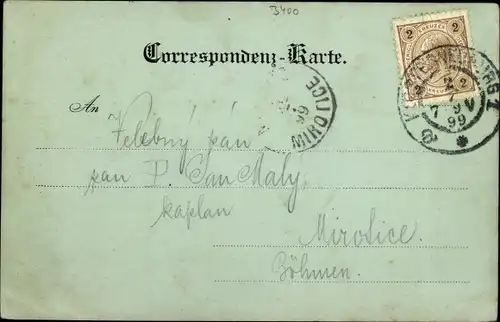 B400
Correspondenz-Karte.
2 KREUZER 2
2 2
MIROTICE
99
2
99
An
Velebný pán
pan P. Jan Malý,
kaplan
Mirotice.
Böhmen.